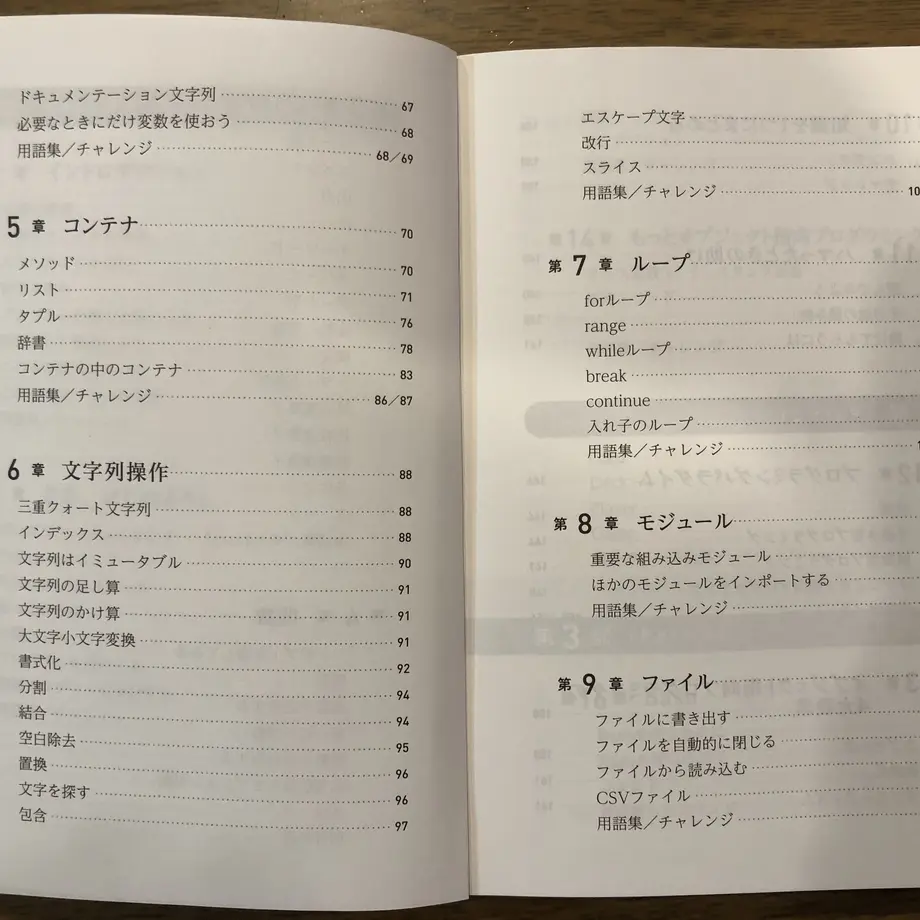 ドキュメンテーション文字列 67
必要なときにだけ変数を使おう 68
用語集／チャレンジ 68／69
5 章 コンテナ 70
メソッド 70
リスト 71
タプル 76
辞書 78
コンテナの中のコンテナ 83
用語集／チャレンジ 86／87
6 章 文字列操作 88
三重クォート文字列 88
インデックス 88
文字列はイミュータブル 90
文字列の足し算 91
文字列のかけ算 91
大文字小文字変換 91
書式化 92
分割 94
結合 94
空白除去 95
置換 96
文字を探す 96
包含 97
エスケープ文字
改行
スライス
用語集／チャレンジ 10
第 7 章 ループ
forループ
range
whileループ
break
continue
入れ子のループ
用語集／チャレンジ 1
第 8 章 モジュール
重要な組み込みモジュール
ほかのモジュールをインポートする
用語集／チャレンジ
第 9 章 ファイル
ファイルに書き出す
ファイルを自動的に閉じる
ファイルから読み込む
CSVファイル
用語集／チャレンジ